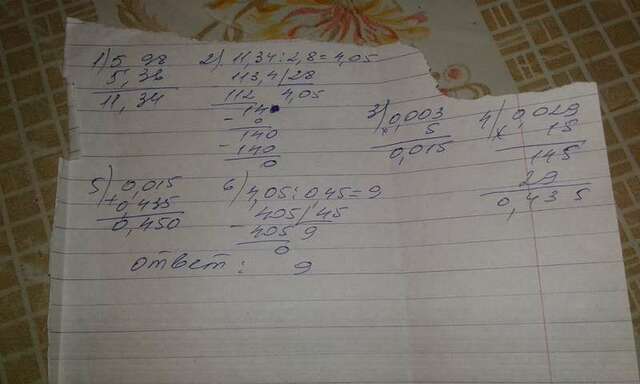 1) 5,98
5,36
11,34
2) 11,34:2,8=4,05
113,4|28
112 4,05
- 140
- 140
140
0
3) 0,003
x 5
0,015
4) 0,029
x 15
145
29
0,435
5) 0,015
+ 0,435
0,450
6) 4,05:0,45=9
405|45
- 405 9
0
ответ: 9